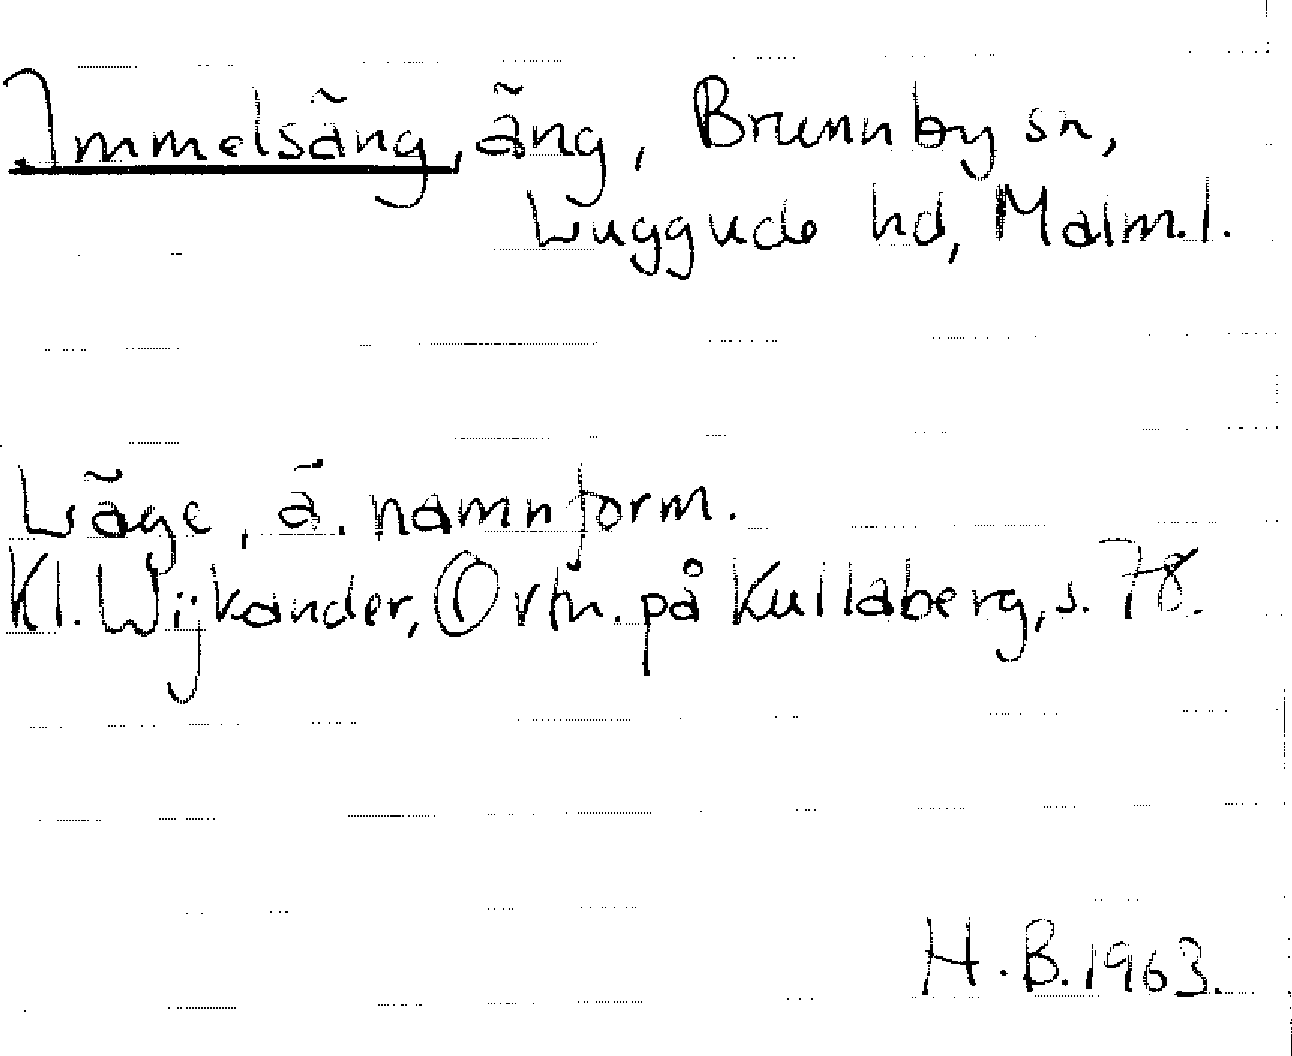 Immelsäng, äng, Brunnby sn,
Luggude hd, Malm.l.
Läge, ä. namnform.
Kl. Wijkander, Ortn. på Kullaberg, s. 78.
H. B. 1963.